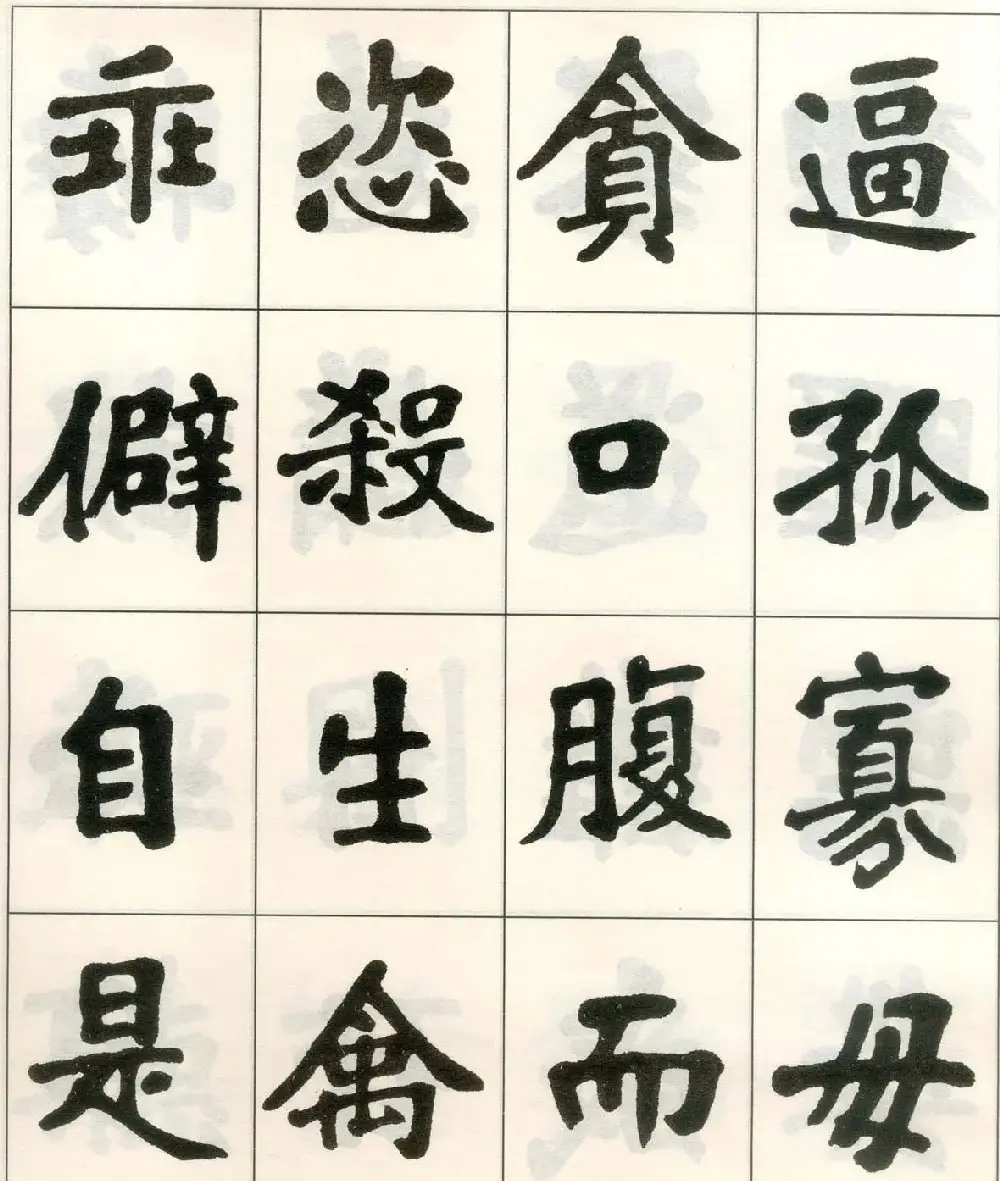 逼孤寡毋
貪口腹而
恣殺生禽
乖僻自是